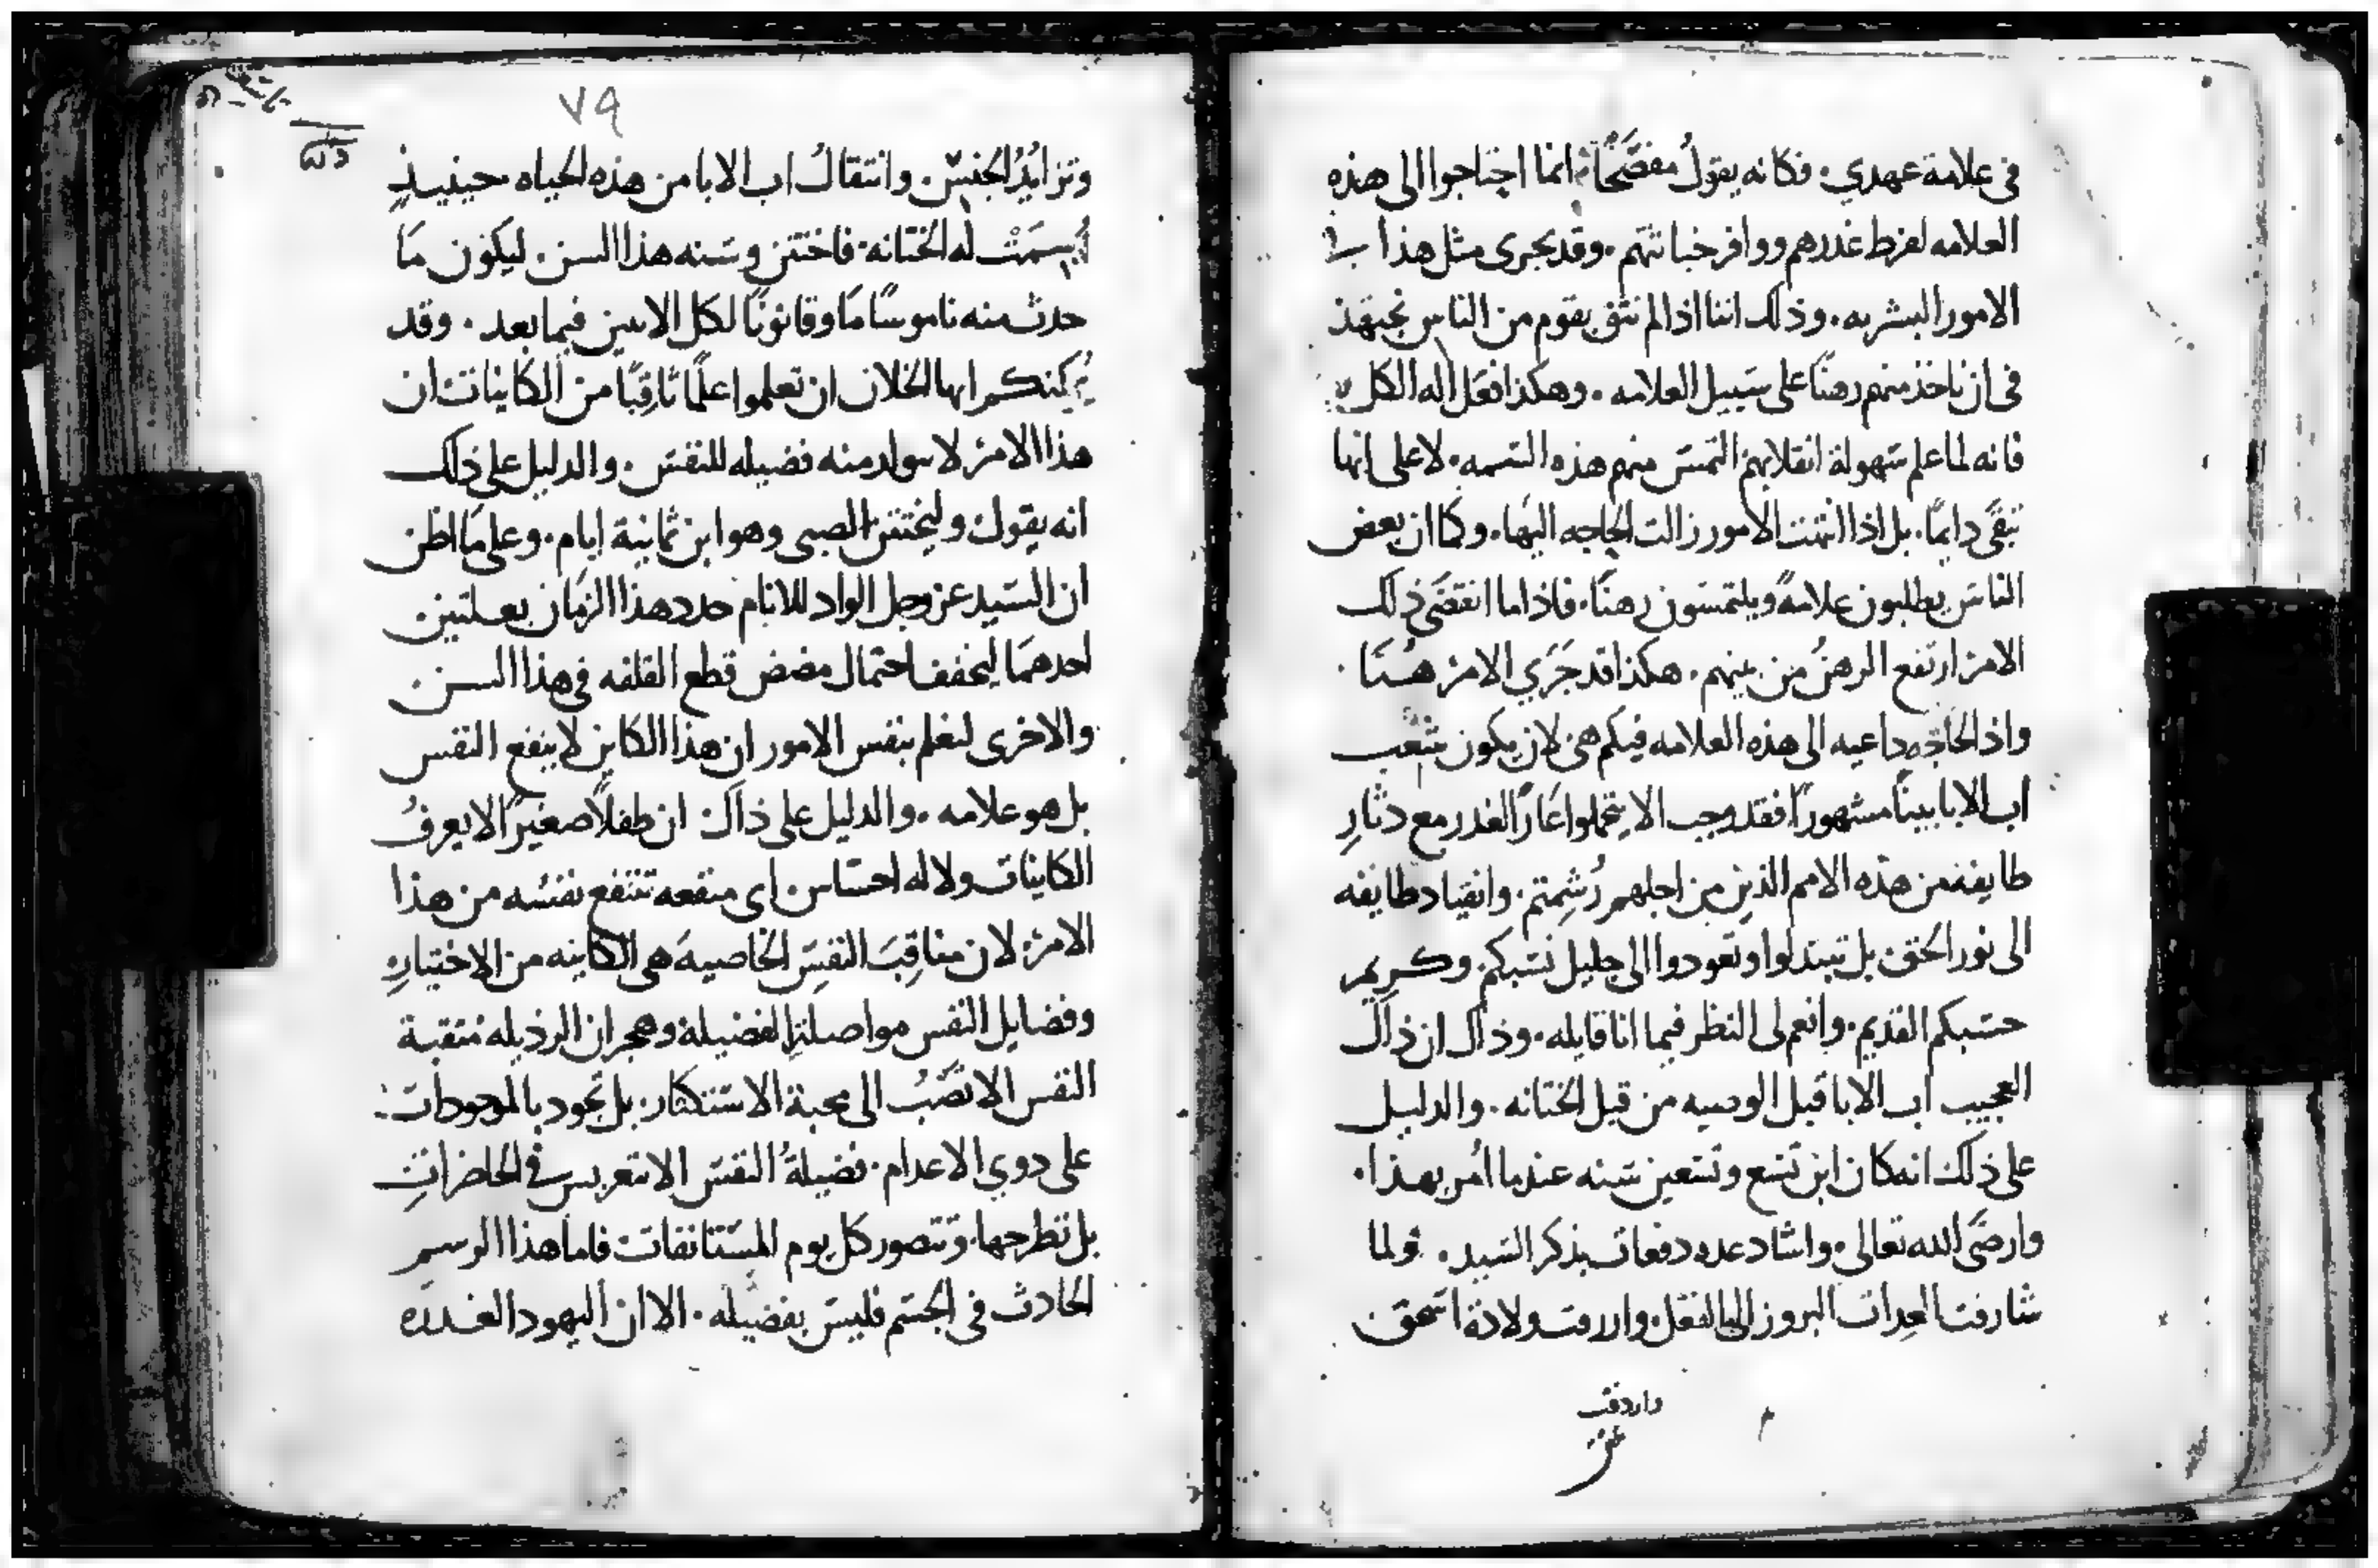 في علامة عهدي. فكانه يقول مفصّحًا انما احتاجوا الى هذه
العلامه لفرط غدرهم ووافر خباثتهم. وقد يجرى مثل هذا
الامور البشريه. وذلك اننا اذا لم نثق بقوم من الناس نجتهد
في ان ناخذ منهم رهنًا على سبيل العلامه. وهكذا فعل اله الكل
فانه لما علم سهولة انقلابهم التمس منهم هذه السمه. لا على انها
تبقى دايمًا. بل اذا انتهت الامور زالت الحاجه اليها. وكما ان بعض
الناس يطلبون علامةً ويلتمسون رهنًا. فاذا ما انقضى ذلك
الامر ارتفع الرهنُ من بينهم. هكذا قد جَرَي الامر هُنا.
واذ الحاجه داعيه الى هذه العلامه فيكم هى لان يكون شعب
اب الابا بينًا مشهورًا فقد وجب الا تتحملوا عارًا لغدر مع دثارِ
طايفه من هذه الامم الذين من اجلهم رُشِمتم. وانقياد طايفه
الى نور الحق. بل تبتدلوا وتعودوا الى جليل نسبكم. وكريم
حسبكم القديم. وانعم لى النظر فيما انا قايله. وذاك ان ذاك
العجيب اب الابا قبل الوصيه من قبل الختانه. والدليل
على ذلك انه كان ابن تسع وتسعين سنه عندما أمر بهذا.
وارضَى الله تعالى. واشاد عده دفعات بذكر السيد. ولما
شارفت العِدات البروز الى الفعل. وارزفت ولادة اسحق
واردفت
وتزايُدُ الجنس. وانتقالُ اب الابا من هذه الحياه. حينيذٍ
رُسِمَتْ له الختانه. فاختتن وسنه هذا السن. ليكون مَا
حدث منه ناموسًا مَا وقانونًا لكل الاتين فيما بعد. وقد
يمكنكم ايها الخلان ان تعلموا علمًا ثاقِبًا من الكاينات ان
هذا الامر لا يتولد منه فضيله للنفس. والدليل على ذلك
انه يقول وليختتن الصبى وهو ابن ثمانية ايام. وعلى ما اظن
ان السّيد عز وجل الواد للانام حدد هذا الزمان بعلتين
احدهمَا ليخفف احتمال مضض قطع القلفه في هذا السن
والاخرى لنعلم بنفس الامور ان هذا الكاين لا ينفع النفس
بل هو علامه. والدليل على ذاك ان طفلاً صغيرًا لا يعرفُ
الكاينات ولا له احساس. اى منفعه تنتفع نفسُه من هذا
الامر. لان مناقِبَ النفس الخاصيه هى الكاينه من الاختيارِ
وفضايل النفس مواصلة الفضيله وهجران الرذيله منقبة
النفس الا تصَبُ الى محبة الاستكثار. بل تجود بالموجودات
على دوي الاعدام. فضيلةُ النفس الا تتعربس في الحاضراتِ
بل تطرحها. وتتصور كل يوم المستانفات فاما هذا الرسم
الحادث في الجسم فليس بفضيله. الا ان اليهود الغدره
٧٩